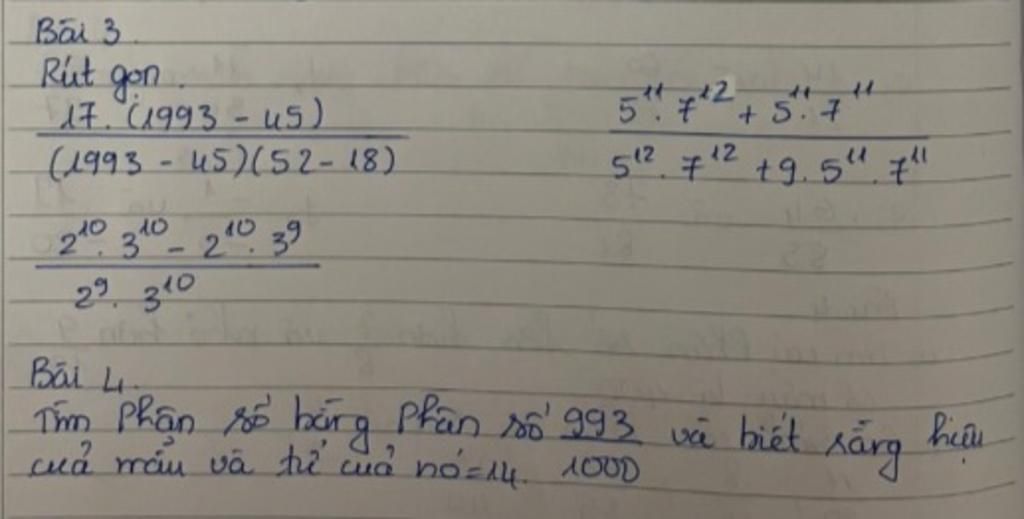 Bài 3.
Rút gọn.
17. (1993 - 45) / (1993 - 45)(52 - 18)
5¹¹. 7¹² + 5¹¹. 7¹¹ / 5¹². 7¹² + 9. 5¹¹. 7¹¹
2¹⁰. 3¹⁰ - 2¹⁰. 3⁹ / 2⁹. 3¹⁰
Bài 4.
Tìm Phân số bằng Phân số 993/1000 và biết rằng hiệu
cuả mẫu và tử cuả nó = 14.